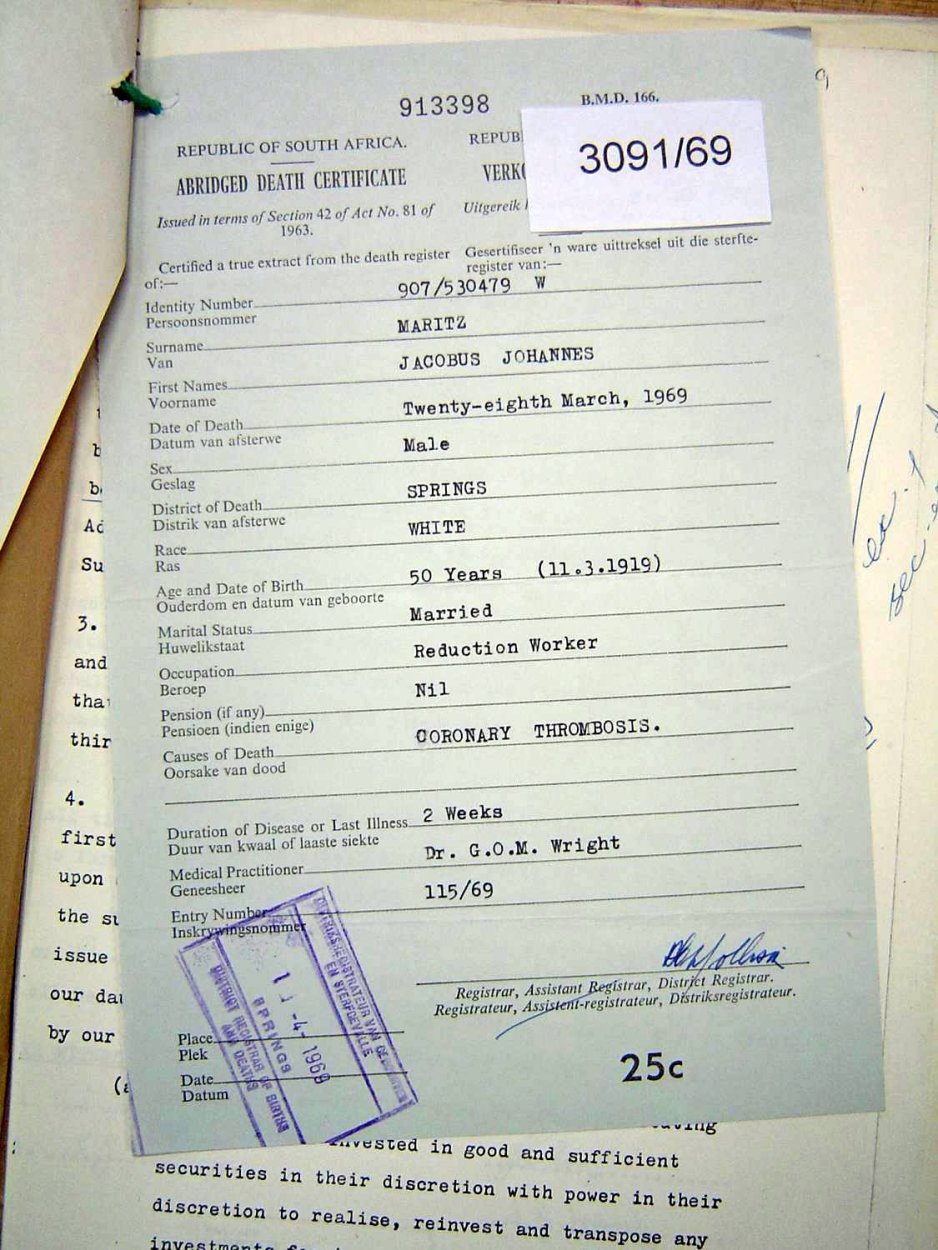 913398
B.M.D. 166.
3091/69
REPUBLIC OF SOUTH AFRICA.
REPUB
ABRIDGED DEATH CERTIFICATE
VERKO
Issued in terms of Section 42 of Act No. 81 of
1963.
Uitgereik
Certified a true extract from the death register
of:—
Gesertifiseer 'n ware uittreksel uit die sterfte-
register van:—
Identity Number 907/530479 W
Persoonsnommer
Surname MARITZ
Van
First Names JACOBUS JOHANNES
Voorname
Date of Death Twenty-eighth March, 1969
Datum van afsterwe
Sex Male
Geslag
District of Death SPRINGS
Distrik van afsterwe
Race WHITE
Ras
Age and Date of Birth 50 Years (11.3.1919)
Ouderdom en datum van geboorte
Marital Status Married
Huwelikstaat
Occupation Reduction Worker
Beroep
Pension (if any) Nil
Pensioen (indien enige)
Causes of Death CORONARY THROMBOSIS.
Oorsake van dood
Duration of Disease or Last Illness 2 Weeks
Duur van kwaal of laaste siekte
Medical Practitioner Dr. G.O.M. Wright
Geneesheer
Entry Number 115/69
Inskrywingsnommer
Registrar, Assistant Registrar, District Registrar.
Registrateur, Assistent-registrateur, Distriksregistrateur.
DISTRIKSREGISTRATEUR VAN
EN STERFGEVALLE
-4- 1969
SPRINGS
DISTRICT REGISTRAR OF BIRTHS
AND DEATHS
Place
Plek
Date
Datum
25c
b
Ad
Su
3.
and
tha
thir
4.
first
upon
the su
issue
our dau
by our
(a
invested in good and sufficient
securities in their discretion with power in their
discretion to realise, reinvest and transpose any
investments